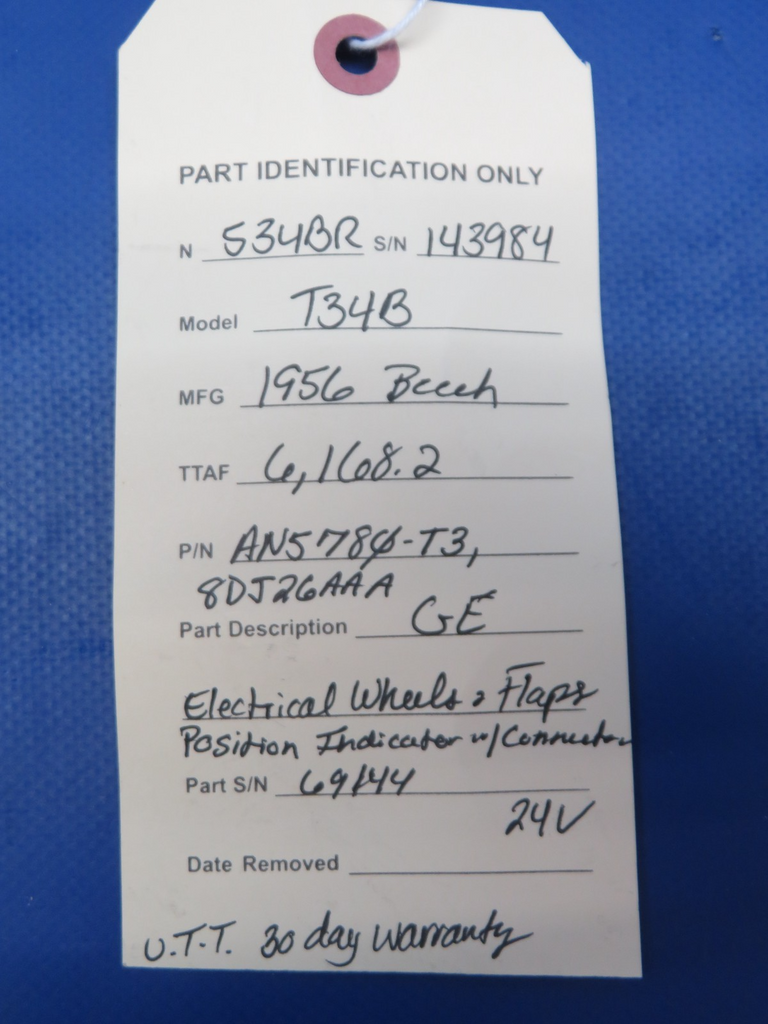 PART IDENTIFICATION ONLY
N 534BR S/N 143984
Model T34B
MFG 1956 Beech
TTAF 6,168.2
P/N AN5780-T3,
8DJ26AAA
Part Description GE
Electrical Wheels & Flaps
Position Indicator w/Connector
Part S/N 69144
24V
Date Removed
U.T.T. 30 day Warranty